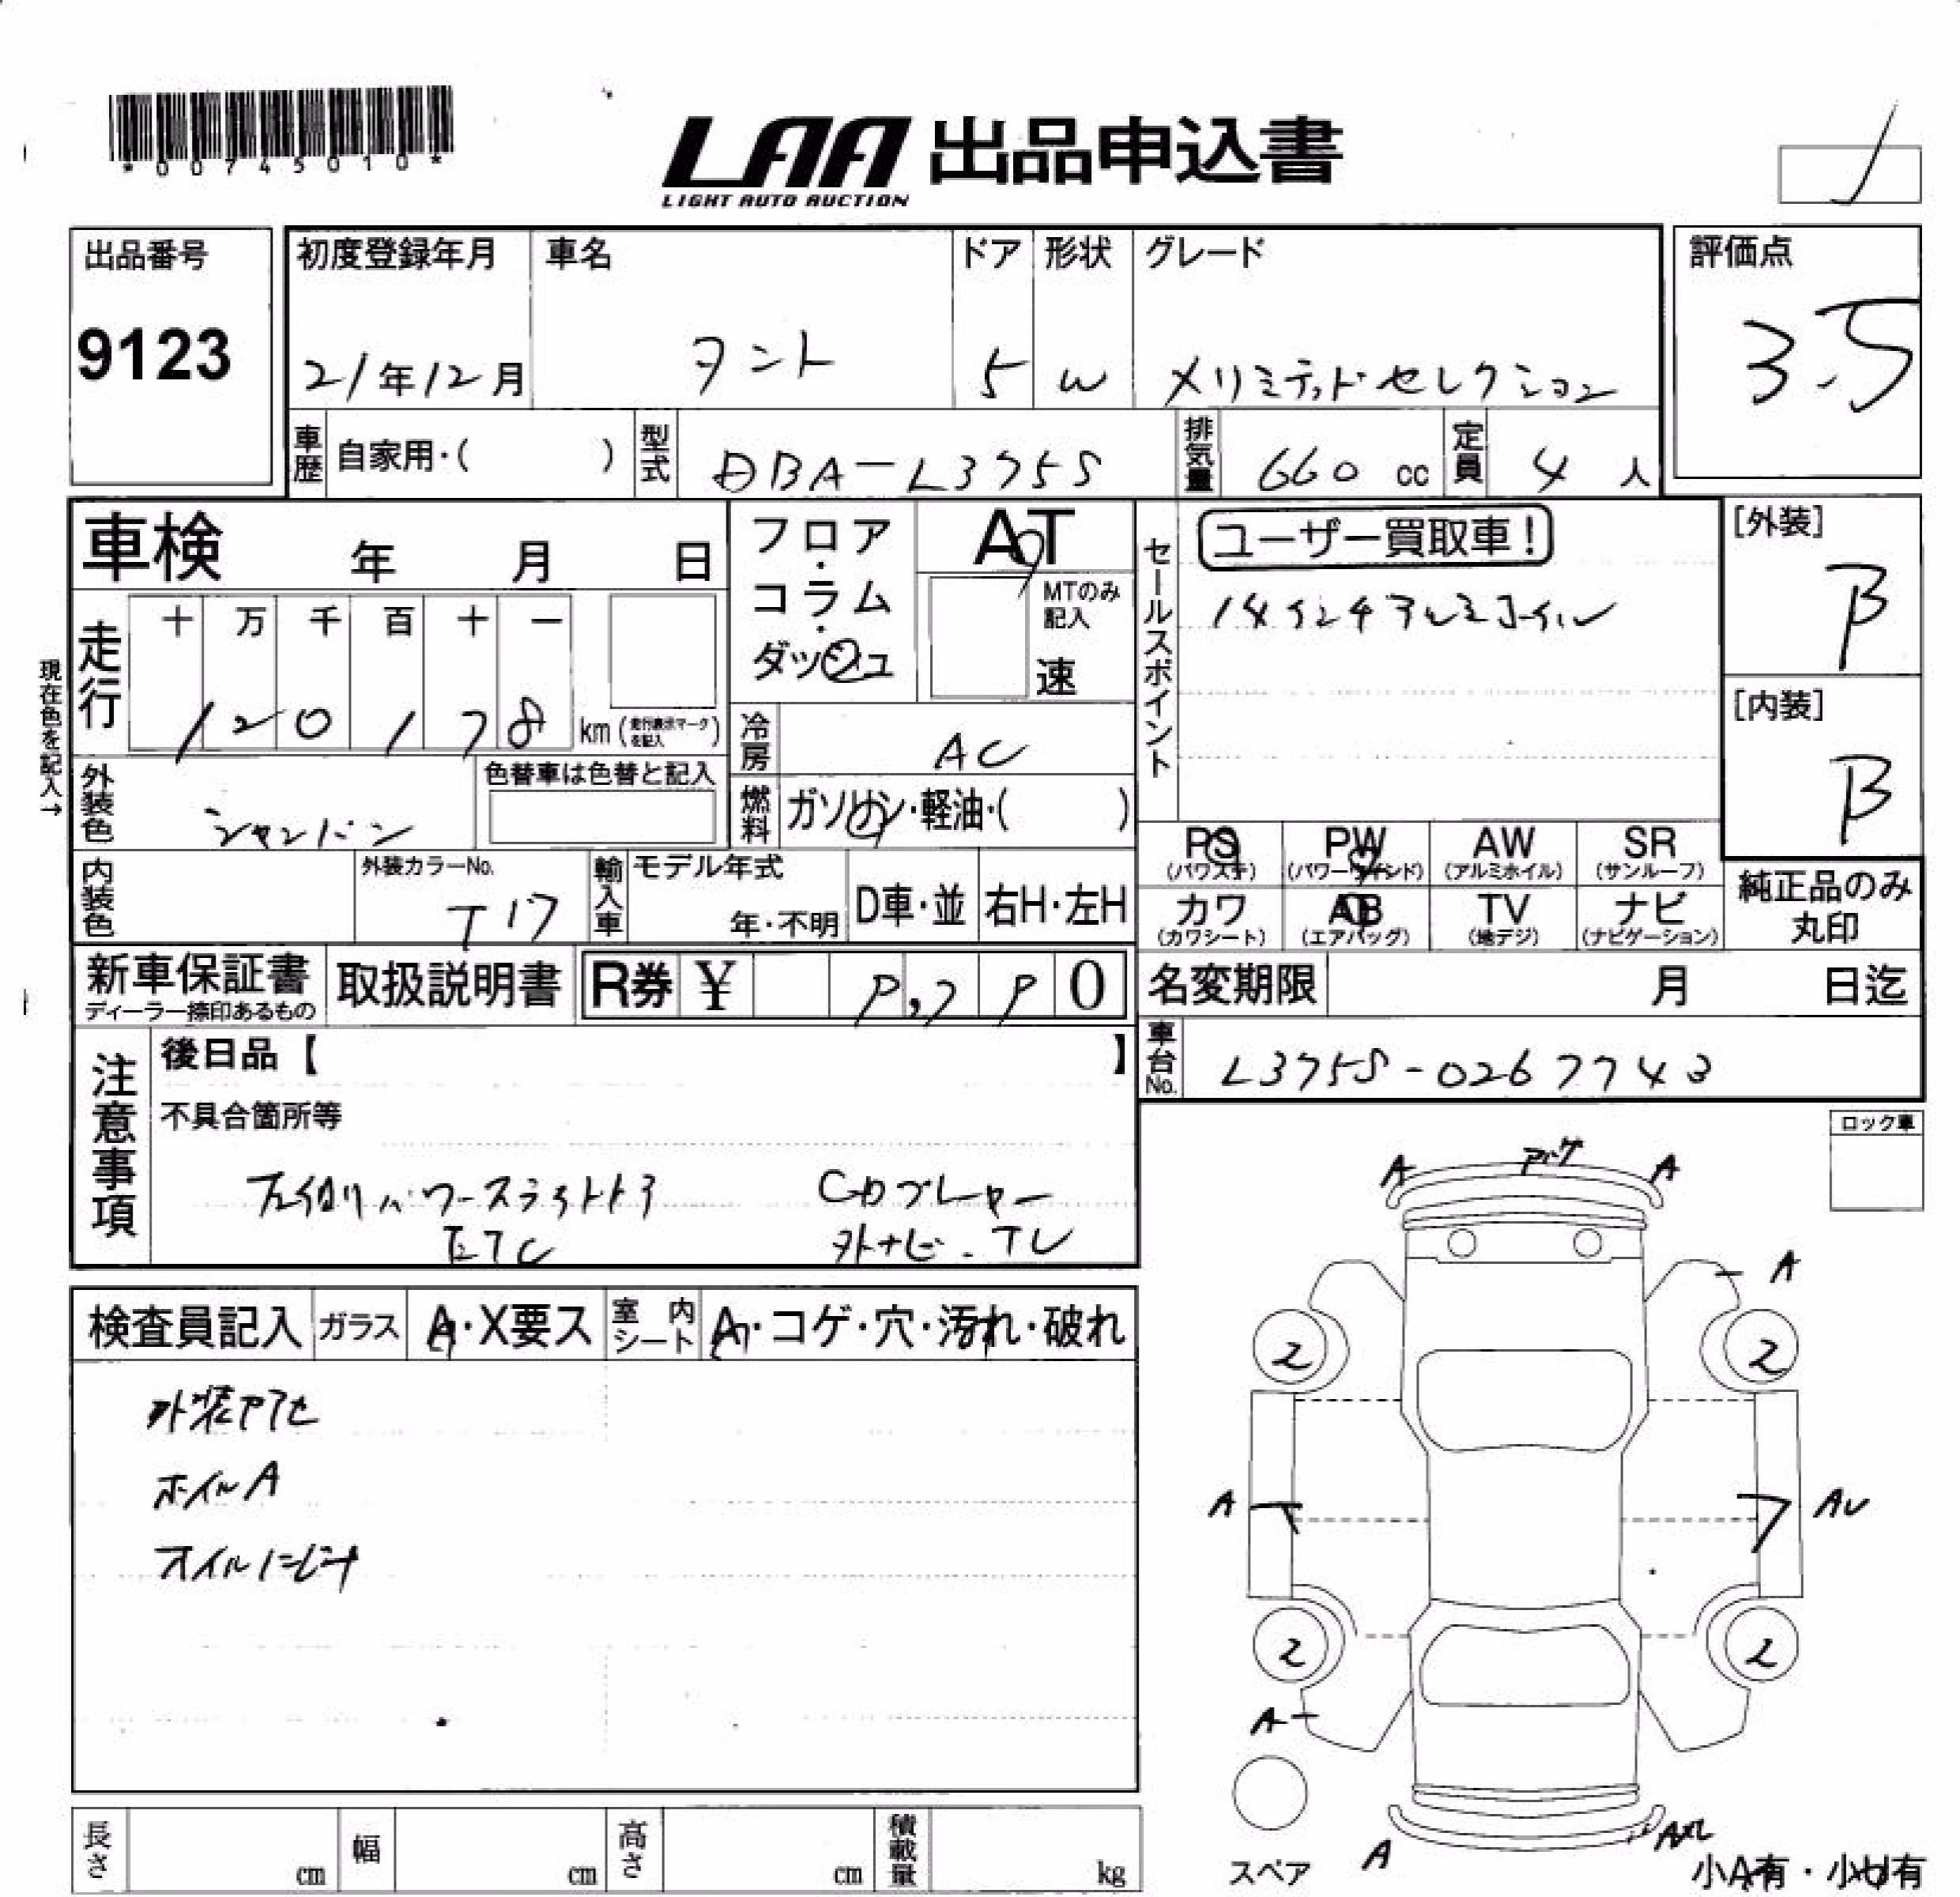 *00745010*
LAA 出品申込書
LIGHT AUTO AUCTION
出品番号
9123
初度登録年月
21年12月
車名
タント
ドア
5
形状
W
グレード
Xリミテッドセレクション
評価点
3.5
車歴 自家用・( )
型式 DBA-L375S
排気量 660 cc
定員 4 人
車検 年 月 日
フロア・コラム・ダッシュ
AT
MTのみ記入
速
セールスポイント
ユーザー買取車!
14インチアルミホイル
[外装]
B
[内装]
B
現在色を記入→
走行 十 万 千 百 十 一
1 2 0 1 7 8 km (走行表示マークを記入)
冷房 AC
外装色 シャンパン
色替車は色替と記入
燃料 ガソリン・軽油・( )
PS
(パワステ)
PW
(パワーウインド)
AW
(アルミホイル)
SR
(サンルーフ)
カワ
(カワシート)
AB
(エアバッグ)
TV
(地デジ)
ナビ
(ナビゲーション)
純正品のみ
丸印
内装色
外装カラーNo.
T17
輸入車
モデル年式
年・不明
D車・並
右H・左H
新車保証書
ディーラー捺印あるもの
取扱説明書
R券 ¥ 0
名変期限 月 日迄
車台No. L375S-0267743
注意事項
後日品【 】
不具合箇所等
左側パワースライドドア CDプレヤー
ETC 外ナビ・TV
ロック車
検査員記入
ガラス A・X要ス
室内シート A・コゲ・穴・汚れ・破れ
外装ヤケ
ホイルA
オイルにじみ
A
A
A
2
2
A
2
2
A
A
スペア
小A有・小U有
長さ cm
幅 cm
高さ cm
積載量 kg